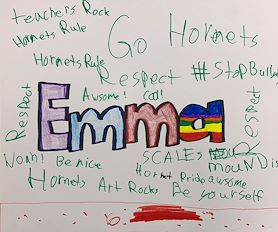 teachers Rock
Hornets Rule
Go Hornets
Hornets Rule
Respect
#StopBully
Awsome! Cool!
Respect
Emma
Respect
Noah! Be nice
SCALES mouNDis
Hornet Pride awsome
Hornets Art Rocks Be yourself